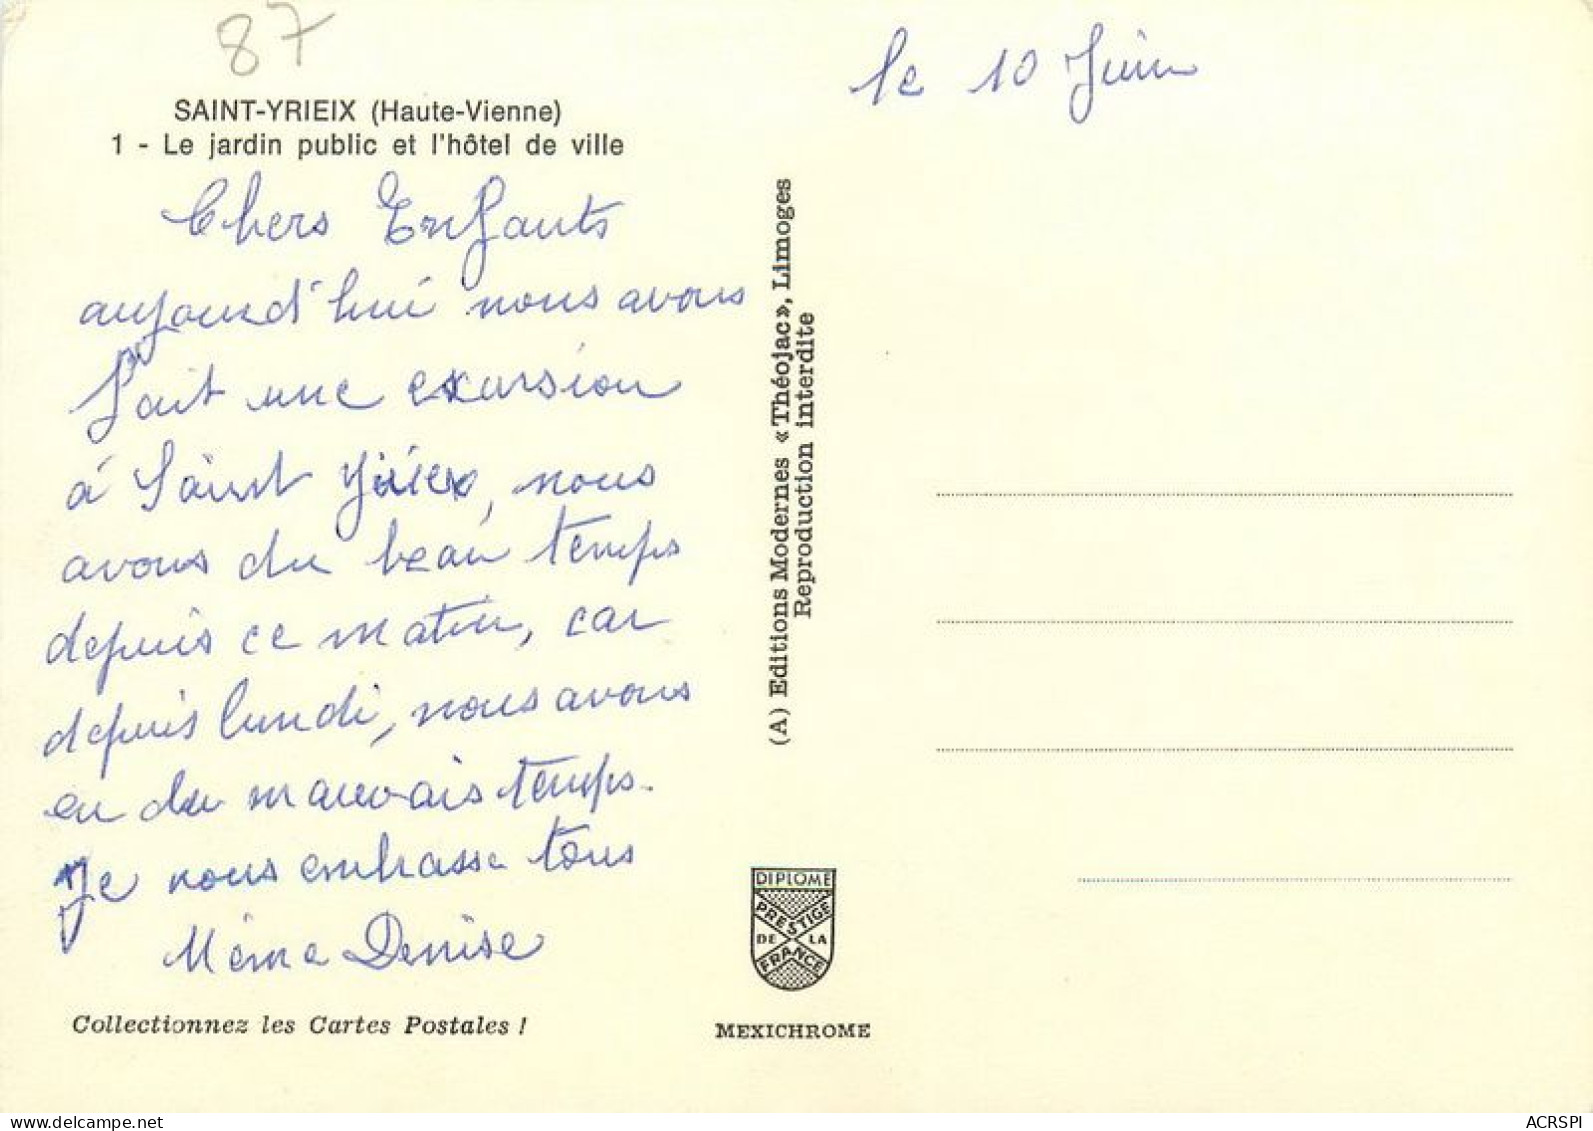 87
SAINT-YRIEIX (Haute-Vienne)
1 - Le jardin public et l'hôtel de ville
le 10 Juin
Chers Enfants
aujourd'hui nous avons
fait une excursion
à Saint Yrieix, nous
avons du beau temps
depuis ce matin, car
depuis lundi, nous avons
eu du mauvais temps.
Je vous embrasse tous
Mémé Denise
Collectionnez les Cartes Postales !
(A) Editions Modernes «Théojac», Limoges
Reproduction interdite
DIPLOME
PRESTIGE
DE LA
FRANCE
MEXICHROME
www.delcampe.net
ACRSPI